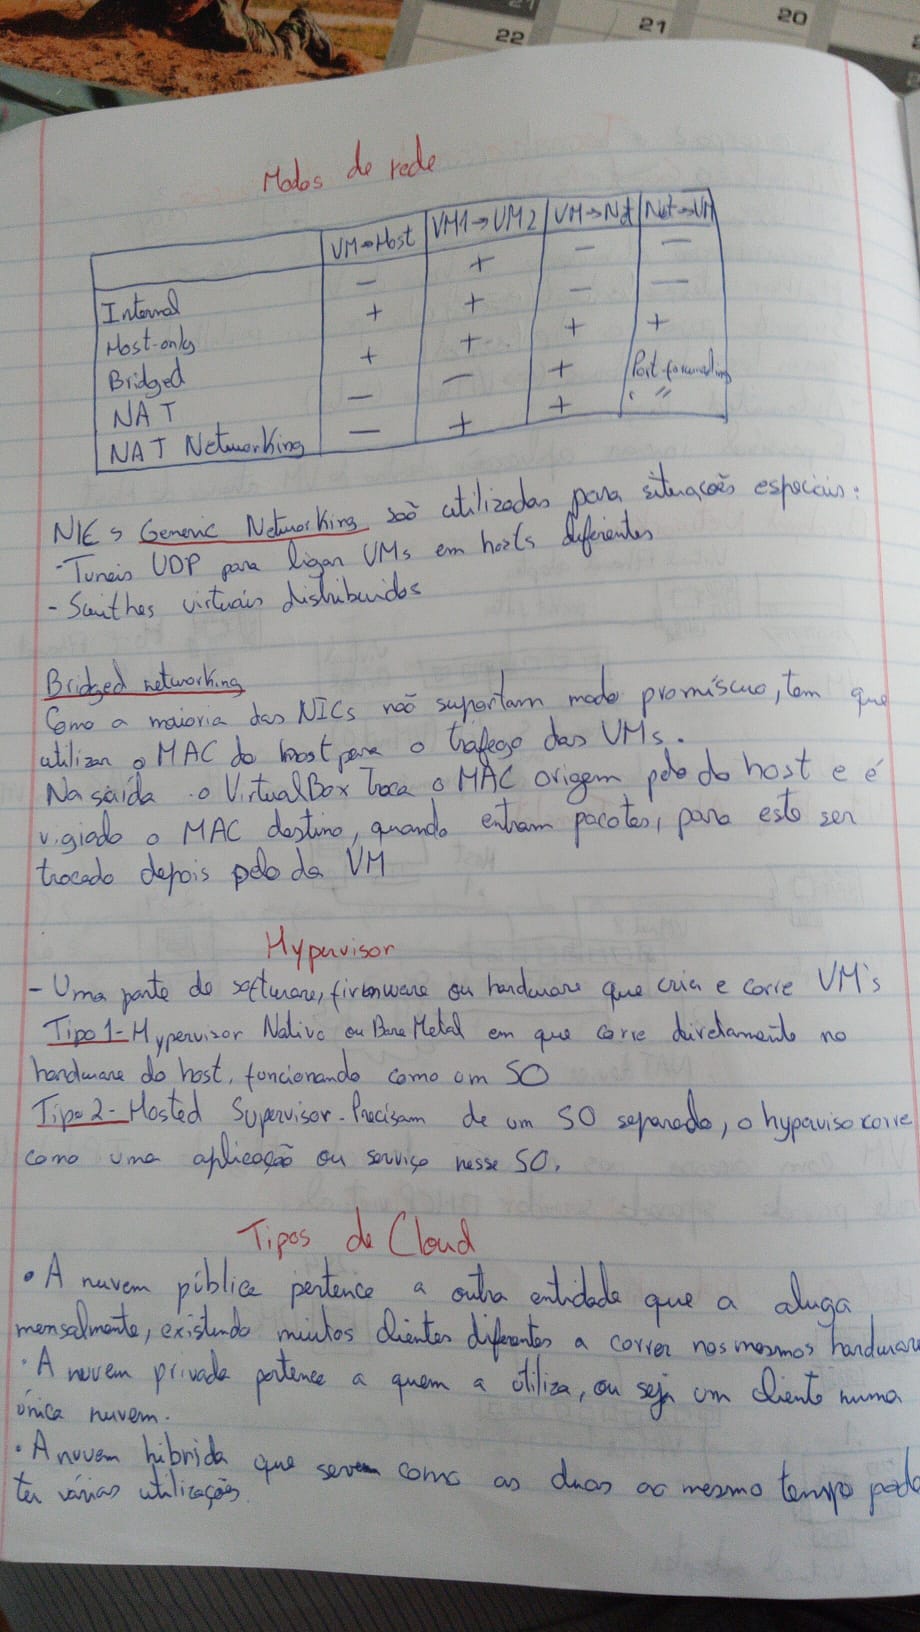 22 21 20
21
Modos de rede
VM→Host VM1→VM2 VM→Net Net→VM
Internal - + - -
Host-only + + - -
Bridged + + + +
NAT - - + Port forwarding
NAT Networking - + + " "
NICs Generic Networking são utilizadas para situações especiais:
- Tuneis UDP para ligar VMs em hosts diferentes
- Swithes virtuais distribuidos
Bridged networking
Como a maioria das NICs não suportam modo promíscuo, tem que
utilizar o MAC do host para o tráfego das VMs.
Na saída o VirtualBox troca o MAC origem pelo do host e é
vigiado o MAC destino, quando entram pacotes, para este ser
trocado depois pelo da VM
Hypervisor
- Uma parte de software, firmware ou hardware que cria e corre VM's
Tipo 1 - Hypervisor Nativo ou Bare Metal em que corre diretamente no
hardware do host, funcionando como um SO
Tipo 2 - Hosted Supervisor - Precisam de um SO separado, o hyperviso corre
como uma aplicação ou serviço nesse SO.
Tipos de Cloud
• A nuvem pública pertence a outra entidade que a aluga
mensalmente, existindo muitos clientes diferentes a correr nos mesmos hardware
• A nuvem privada pertence a quem a utiliza, ou seja um cliente numa
única nuvem.
• A nuvem hibrida que servem como as duas ao mesmo tempo pode
ter várias utilizações